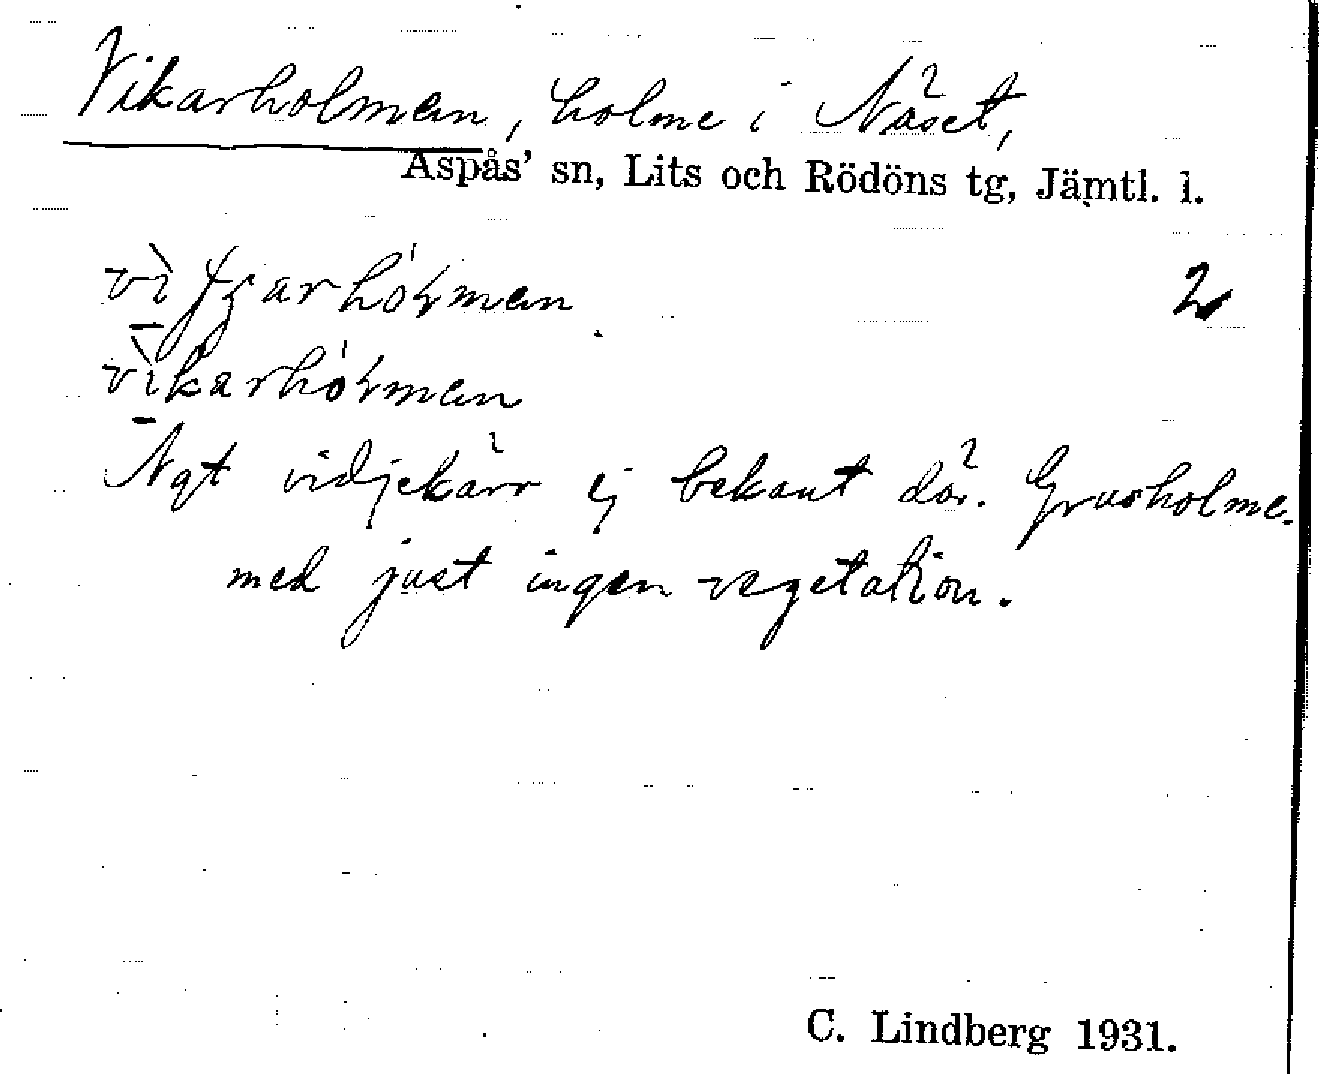 Vikarholmen, holme i Näset,
Aspås' sn, Lits och Rödöns tg, Jämtl. l.
2
vikarhólmen
Ngt vidjekärr ej bekant där. Grusholme
med just ingen vegetation.
C. Lindberg 1931.